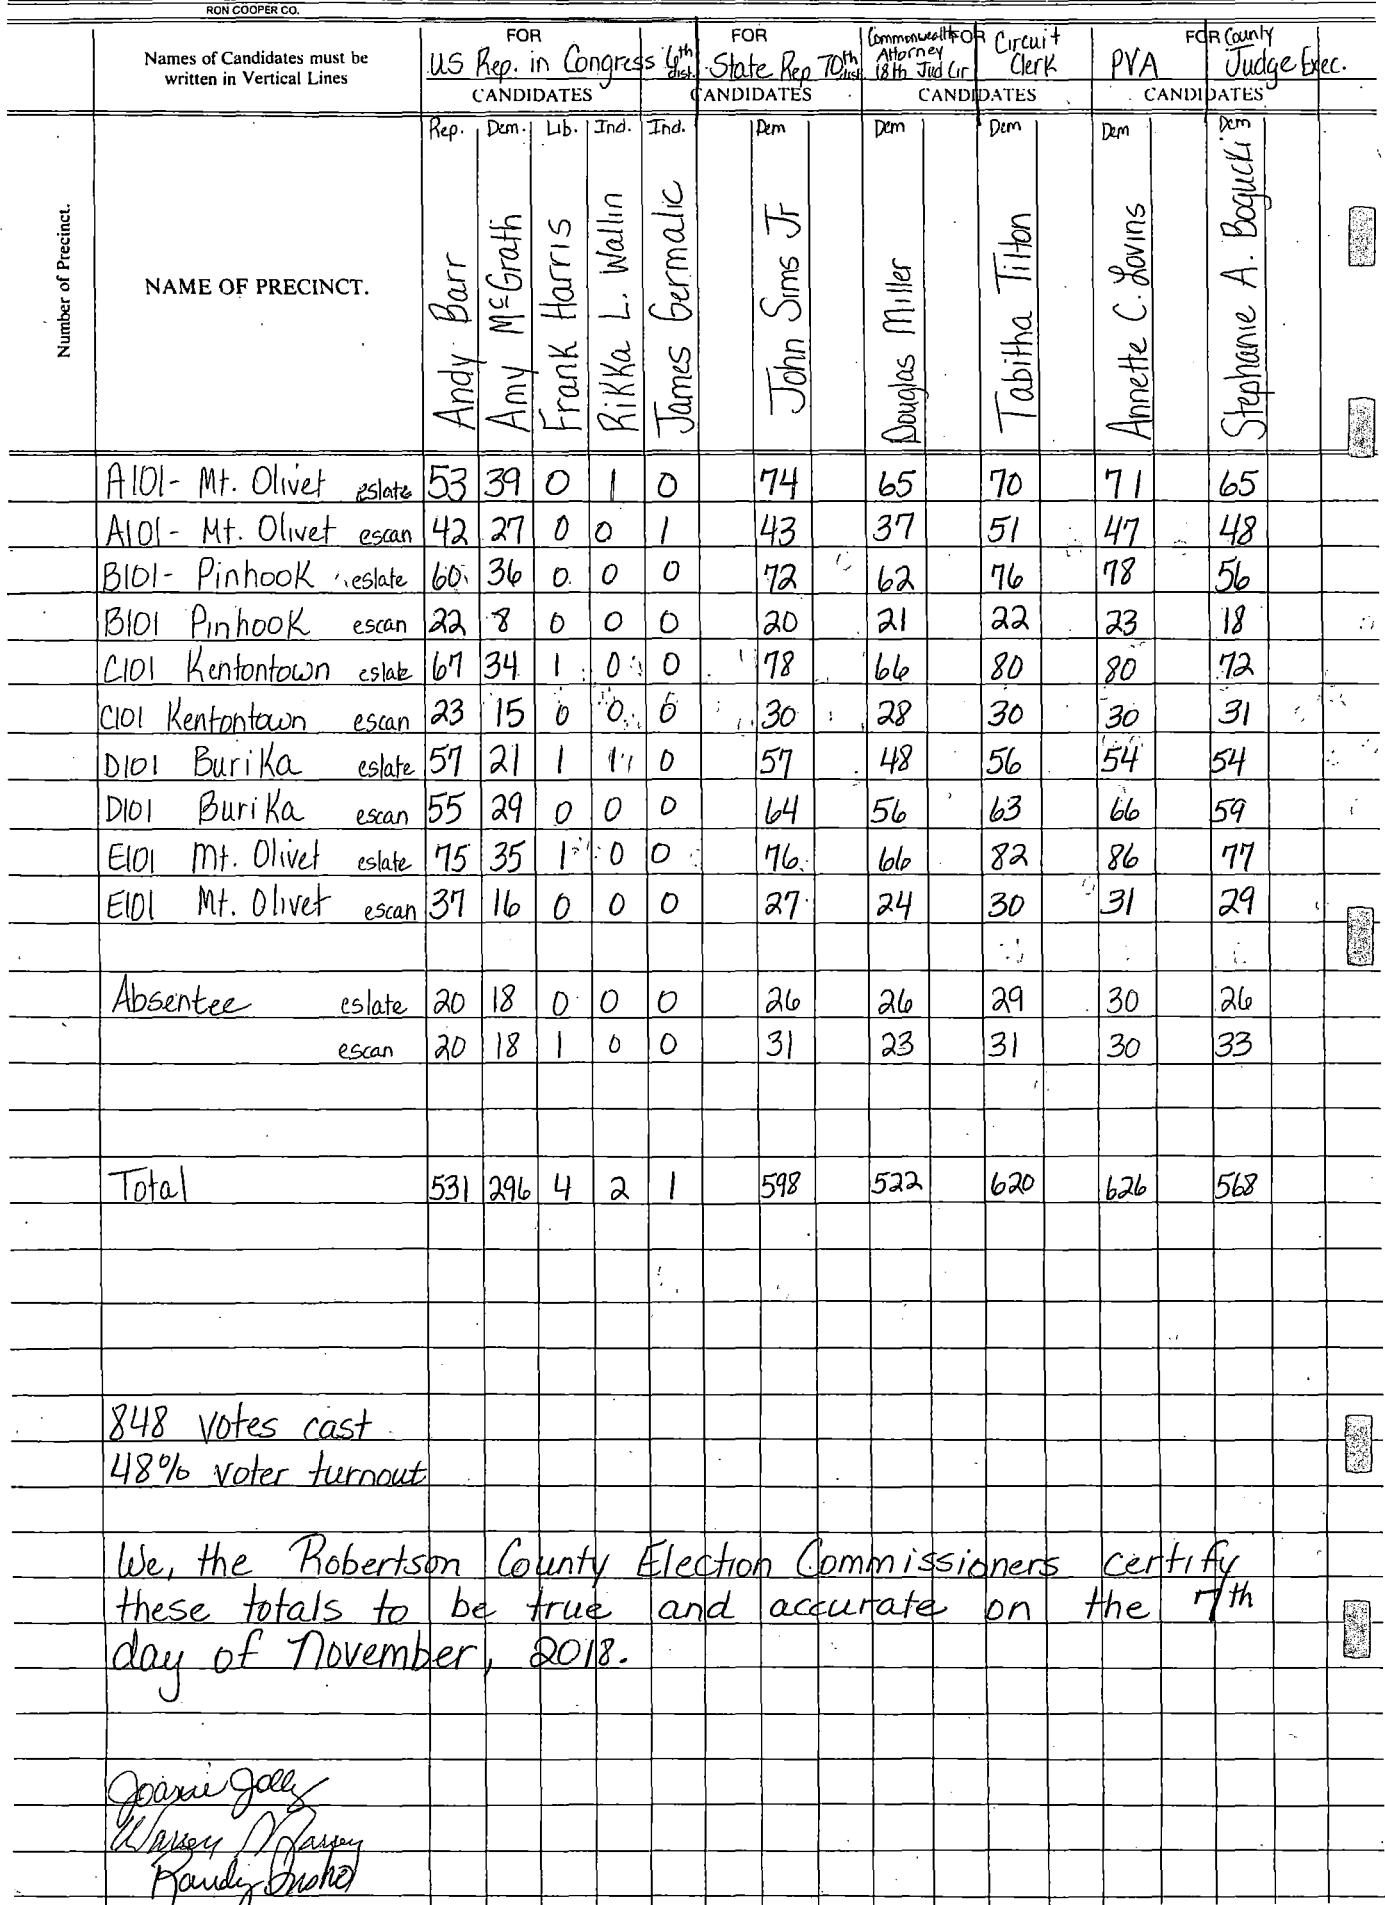 RON COOPER CO.
Names of Candidates must be written in Vertical Lines
FOR US Rep. in Congress 6th dist.
FOR State Rep 70th dist
Commonwealths FOR Attorney 18th Jud Cir
Circuit Clerk
PVA
FOR County Judge Exec.
CANDIDATES CANDIDATES CANDIDATES CANDIDATES
Number of Precinct.
NAME OF PRECINCT.
Rep. Dem. Lib. Ind. Ind. Dem Dem Dem Dem Dem
Andy Barr
Amy McGrath
Frank Harris
Rikka L. Wallin
James Germalic
John Sims Jr
Douglas Miller
Tabitha Tilton
Annette C. Lovins
Stephanie A. Bogucki
A101- Mt. Olivet eslate 53 39 0 1 0 74 65 70 71 65
A101- Mt. Olivet escan 42 27 0 0 1 43 37 51 47 48
B101- Pinhook eslate 60 36 0 0 0 72 62 76 78 56
B101 Pinhook escan 22 8 0 0 0 20 21 22 23 18
C101 Kentontown eslate 67 34 1 0 0 78 66 80 80 72
C101 Kentontown escan 23 15 0 0 0 30 28 30 30 31
D101 Burika eslate 57 21 1 1 0 57 48 56 54 54
D101 Burika escan 55 29 0 0 0 64 56 63 66 59
E101 Mt. Olivet eslate 75 35 1 0 0 76 66 82 86 77
E101 Mt. Olivet escan 37 16 0 0 0 27 24 30 31 29
Absentee eslate 20 18 0 0 0 26 26 29 30 26
escan 20 18 1 0 0 31 23 31 30 33
Total 531 296 4 2 1 598 522 620 626 568
848 votes cast
48% voter turnout
We, the Robertson County Election Commissioners certify
these totals to be true and accurate on the 7th
day of November, 2018.
Joanie Jolly
Randy